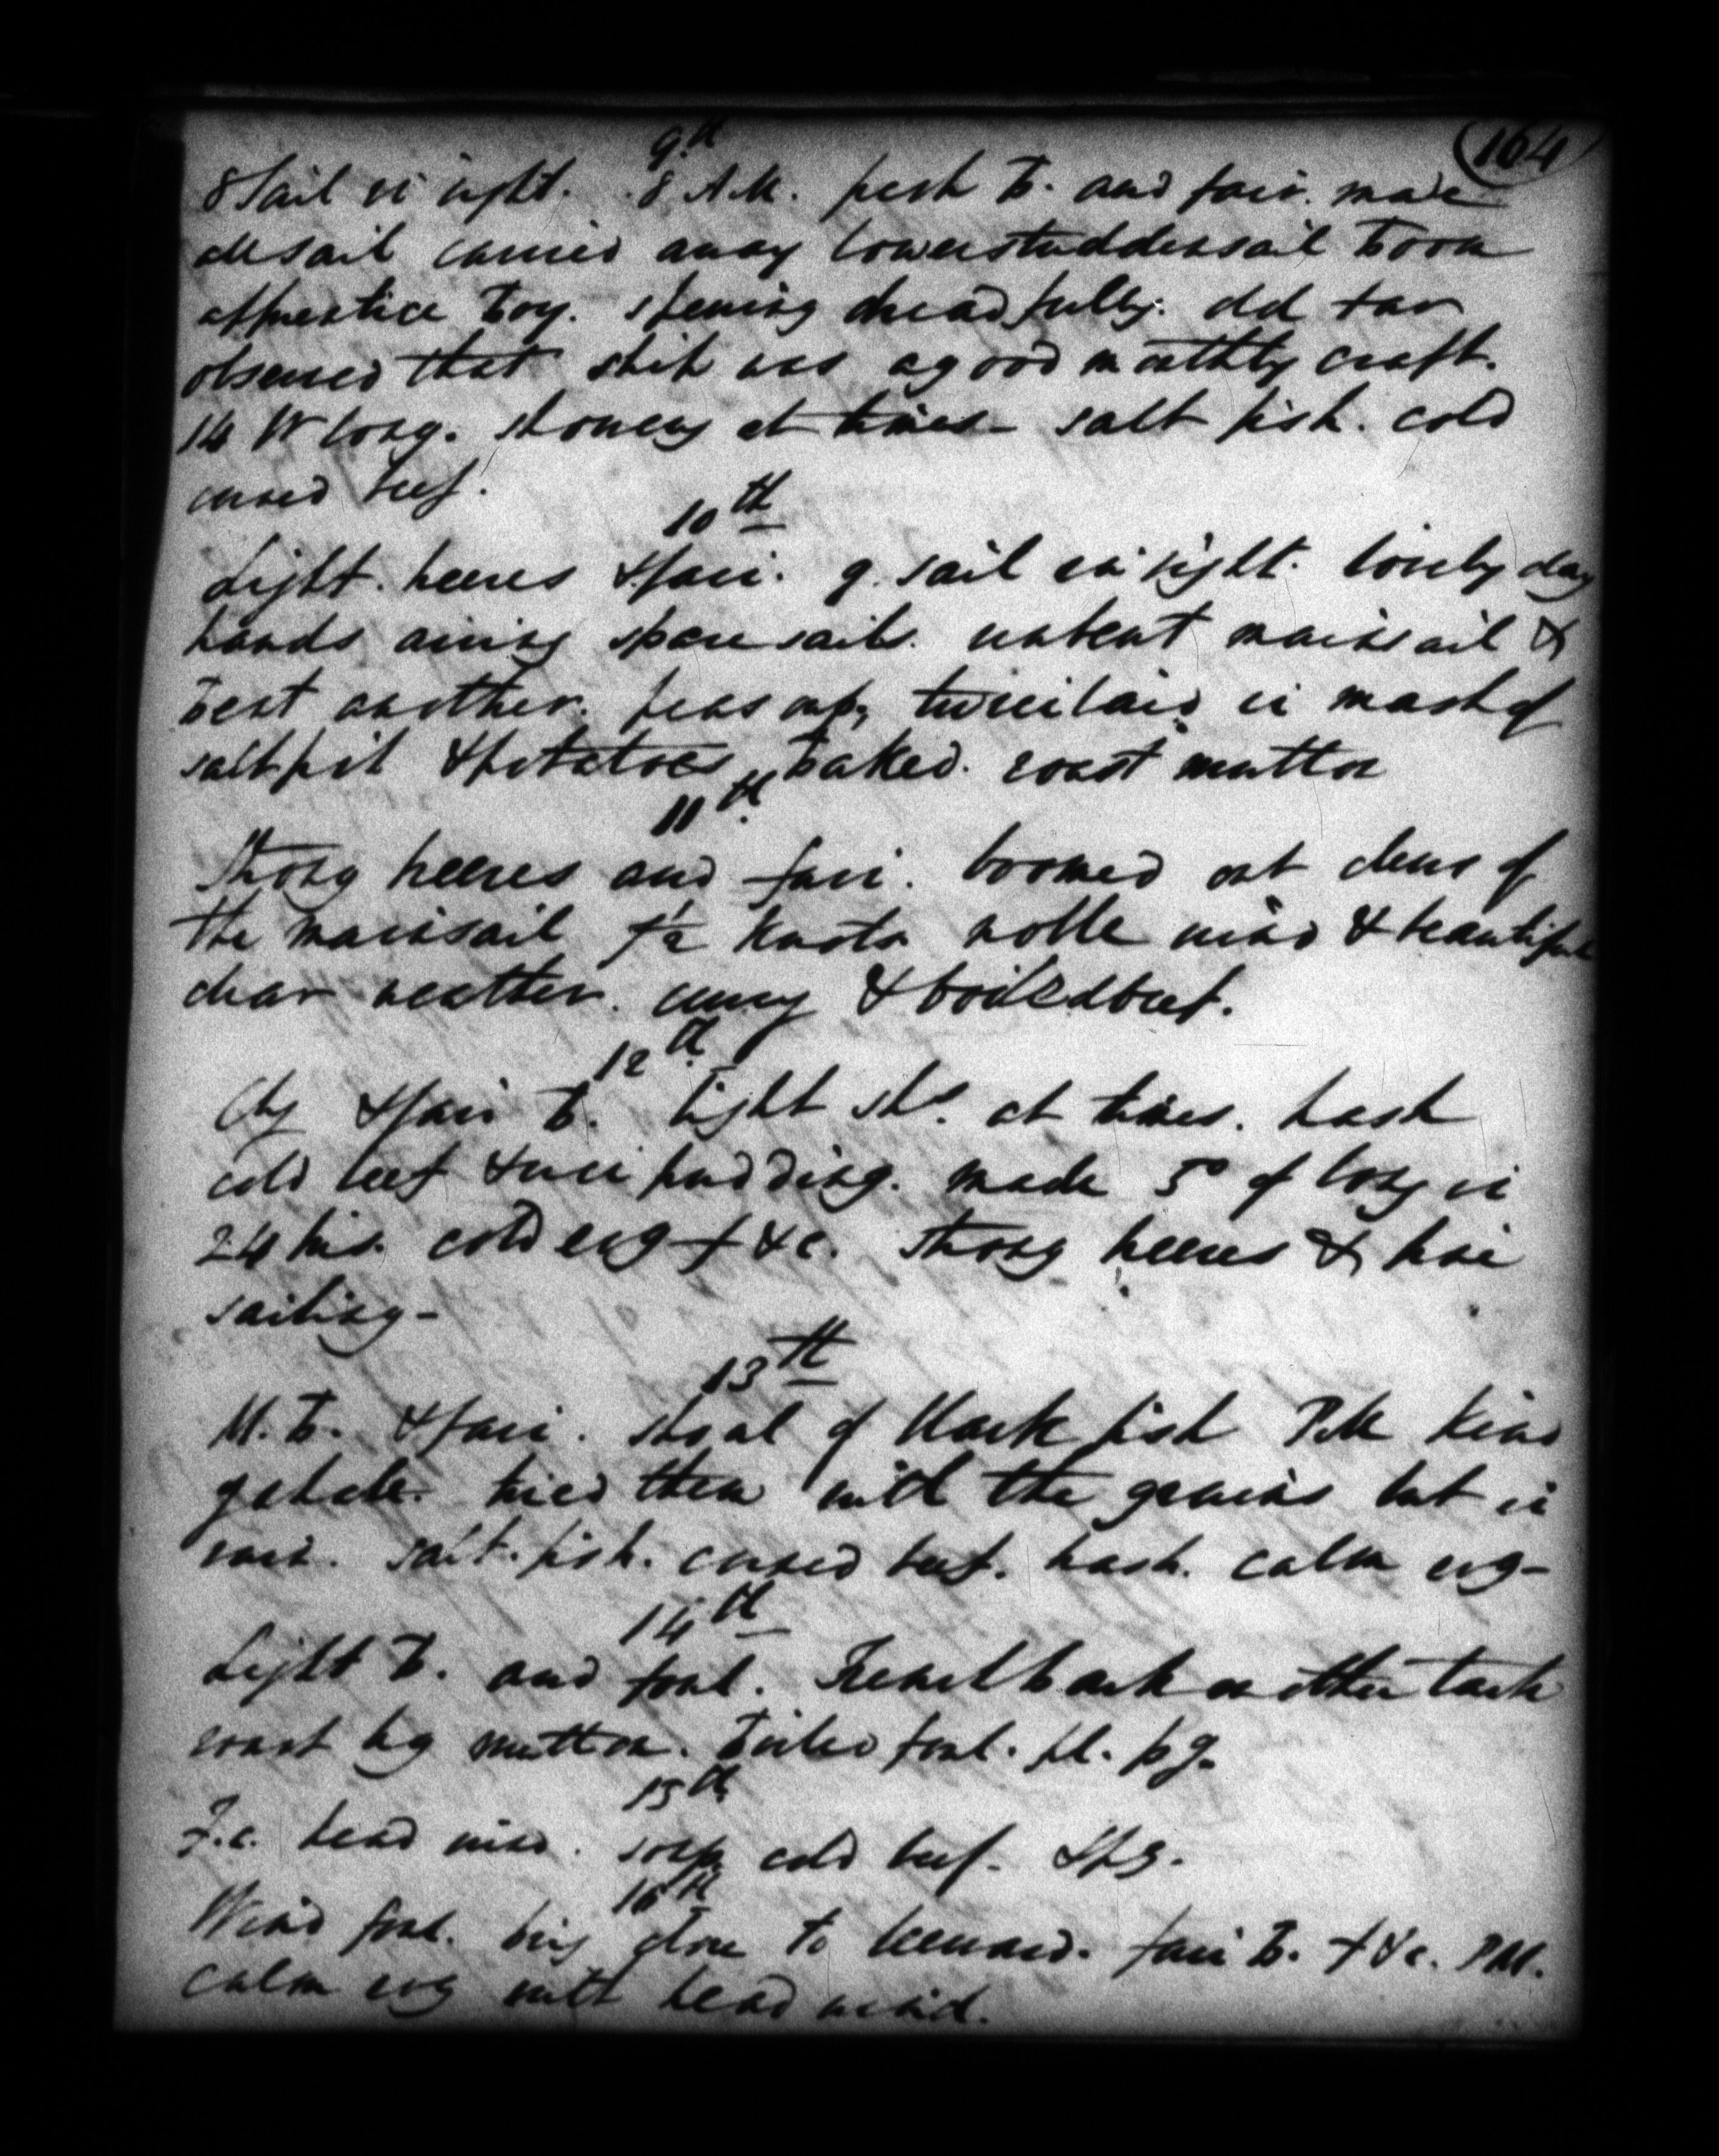 164
9th
8 sail in sight. 8 A.M. fresh b. and fair. made
all sail carried away lower studdensail boom
apprentice boy. spewing dreadfully. old tar
observed that ship was a good monthly craft.
14 W long. showery at times - salt fish. cold
corned beef.
10th
Light breezes & fair. 9 sail in sight. lovely day
hands airing spare sails. unbent mainsail &
bent another. peas soup, twicelaid in mash of
salt fish & potatoes baked. roast mutton
11th
Strong breezes and fair. boomed out clews of
the mainsail knots noble wind & beautiful
clear weather. curry & boiled beef.
12th
Cly & fair b. light shs. at times. hash
cold beef & rice pudding. made 5° of long in
24 hrs. cold evg + &c. strong breezes & fine
sailing -
13th
M. b. & fair. shoal of black fish P.M. kind
of whale. tried them with the grains but in
vain. salt. fish. corned beef. hash. calm evg -
14th
Light b. and foul. French bark on other tack
roast leg mutton. boiled fowl. pl. pg.
15th
F.c. head wind. soup cold beef. & pg.
16th
Wind foul. brig close to leeward. fair b. + &c. P.M.
calm evg with head wind.